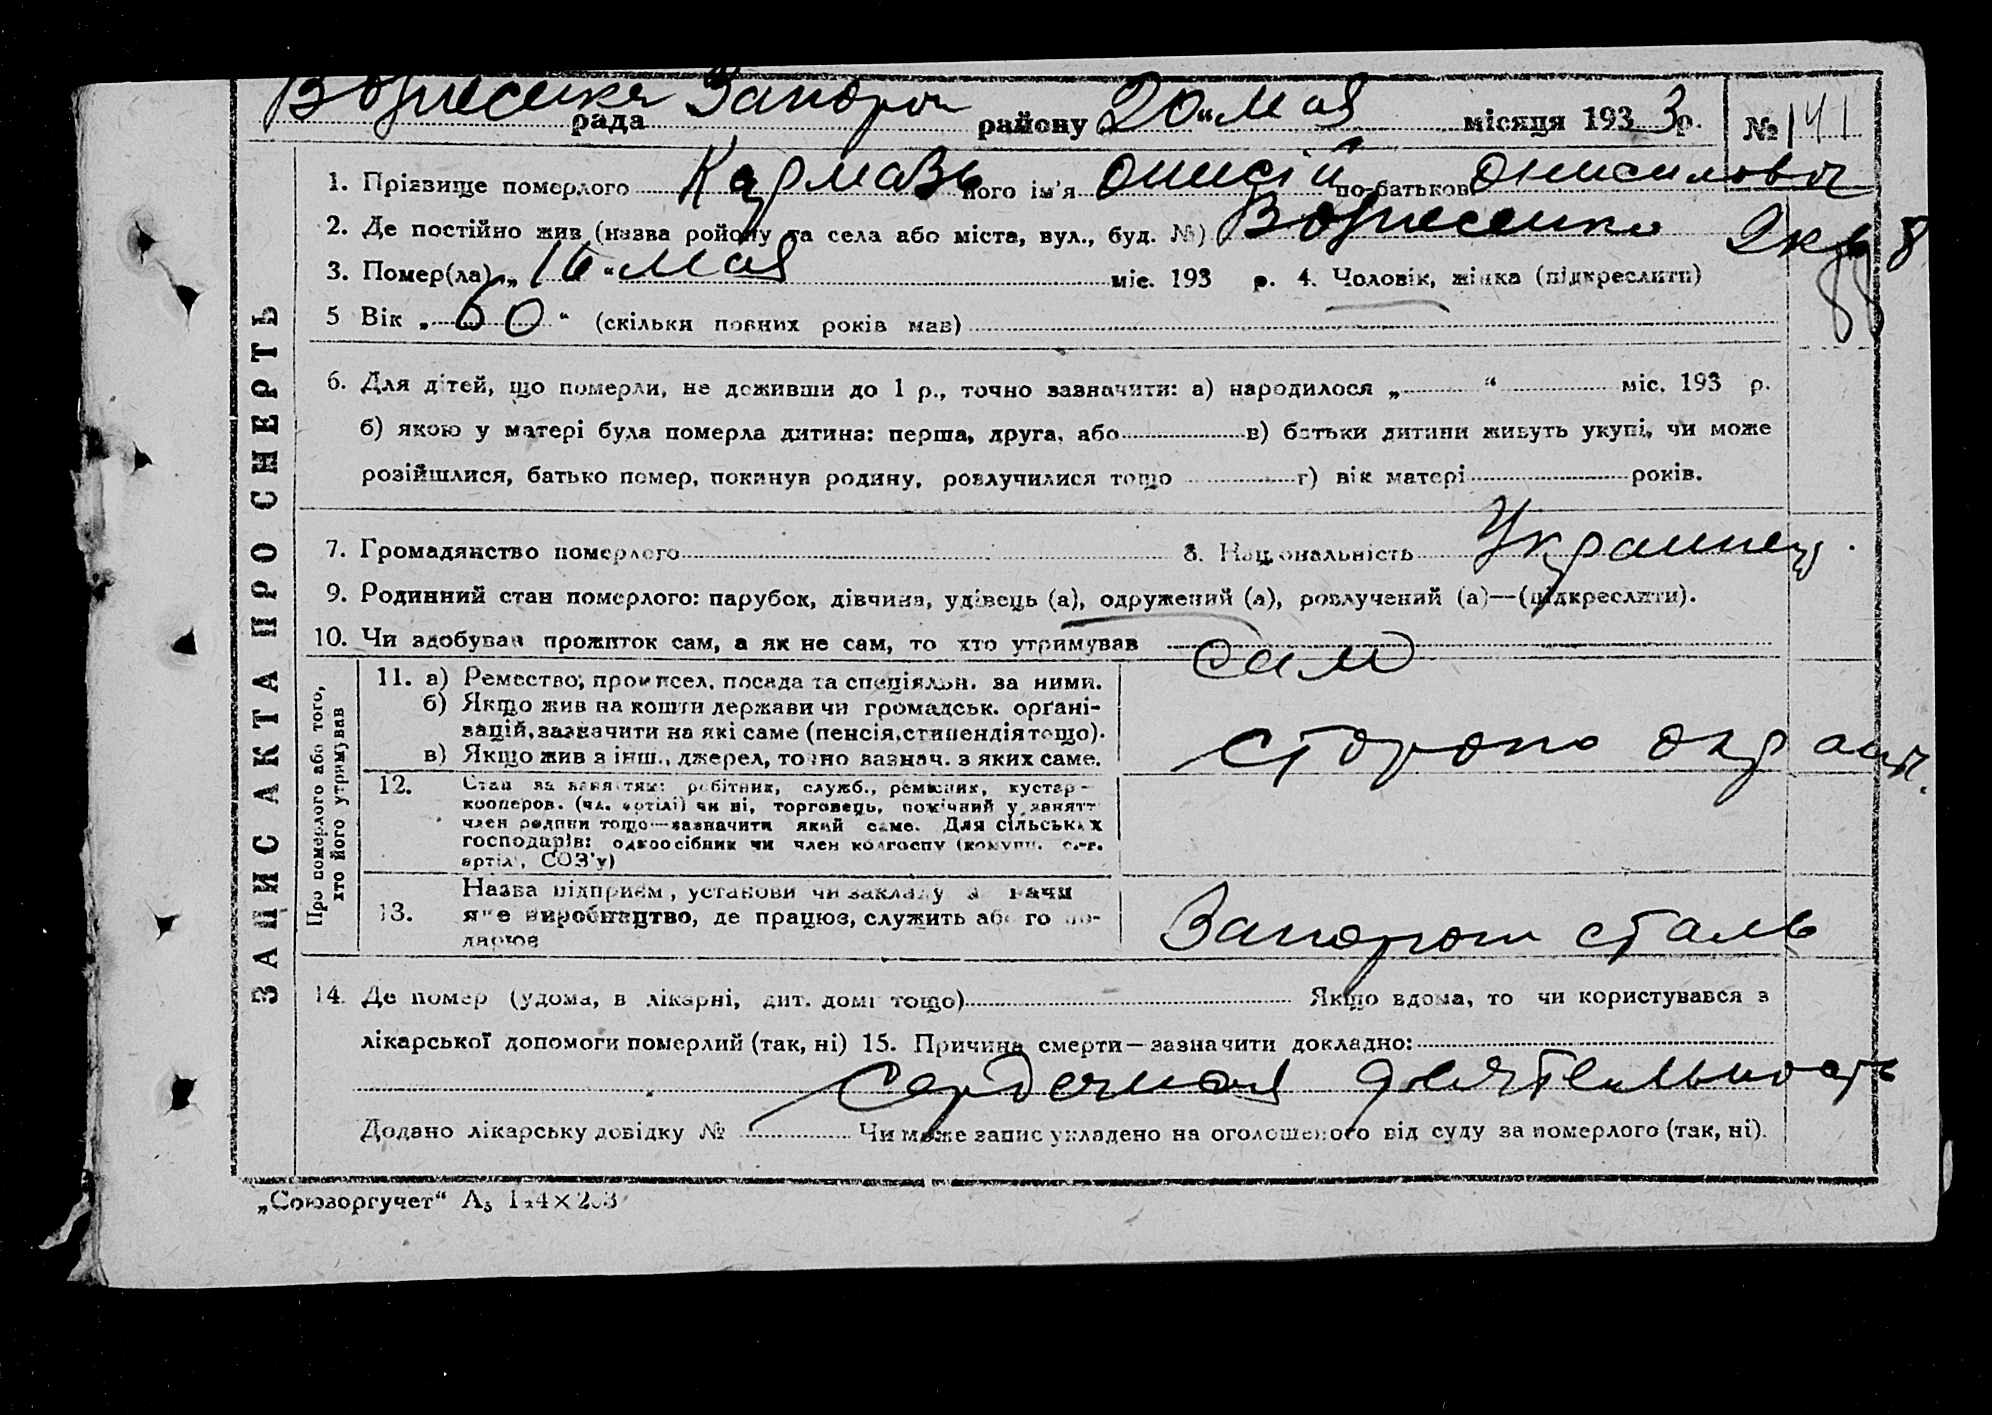 Вознесенка рада Запорож району 20 „ Мая місяця 1933 р. № 141
ЗАПИС АКТА ПРО СМЕРТЬ
1. Прізвище померлого його ім'я Онисій по-батькові
2. Де постійно жив (назва району та села або міста, вул., буд. №) Вознесенка
3. Помер(ла) „ 16 “ Мая міс. 193 р. 4. Чоловік, жінка (підкреслити)
5 Вік „ 60 “ (скільки повних років мав)
6. Для дітей, що померли, не доживши до 1 р., точно зазначити: а) народилося „ “ міс. 193 р.
б) якою у матері була померла дитина: перша, друга, або в) батьки дитини живуть укупі, чи може
розійшлися, батько помер, покинув родину, розлучилися тощо г) вік матері років.
7. Громадянство померлого 8. Національність Украинец.
9. Родинний стан померлого: парубок, дівчина, удівець (а), одружений (а), розлучений (а)—(підкреслити).
10. Чи здобував прожиток сам, а як не сам, то хто утримував сам
Про померлого або того,
хто його утримував
11. а) Ремество, промисел, посада та спеціяльн. за ними.
б) Якщо жив на кошти держави чи громадськ. органі-
зацій, зазначити на які саме (пенсія, стипендія тощо).
в) Якщо жив з інш., джерел, точно зазнач. з яких саме.
12. Стан за заняттям: робітник, служб., ремісник, кустар-
кооперов. (чл. артілі) чи ні, торговець, помічний у занятт
член родини тощо—зазначити який саме. Для сільських
господарів: одноосібник чи член колгоспу (комуни, с.-г.
артілі, СОЗ'у)
13. Назва підприєм., установи чи закладу
яке виробництво, де працює, служить або го по-
дарює
Запорож сталь
14. Де помер (удома, в лікарні, дит. домі тощо) Якщо вдома, то чи користувався з
лікарської допомоги померлий (так, ні) 15. Причина смерти—зазначити докладно:
Сердечная деятельность
Додано лікарську довідку № Чи може запис укладено на оголошеного від суду за померлого (так, ні).
„Союзоргучет“ А₅